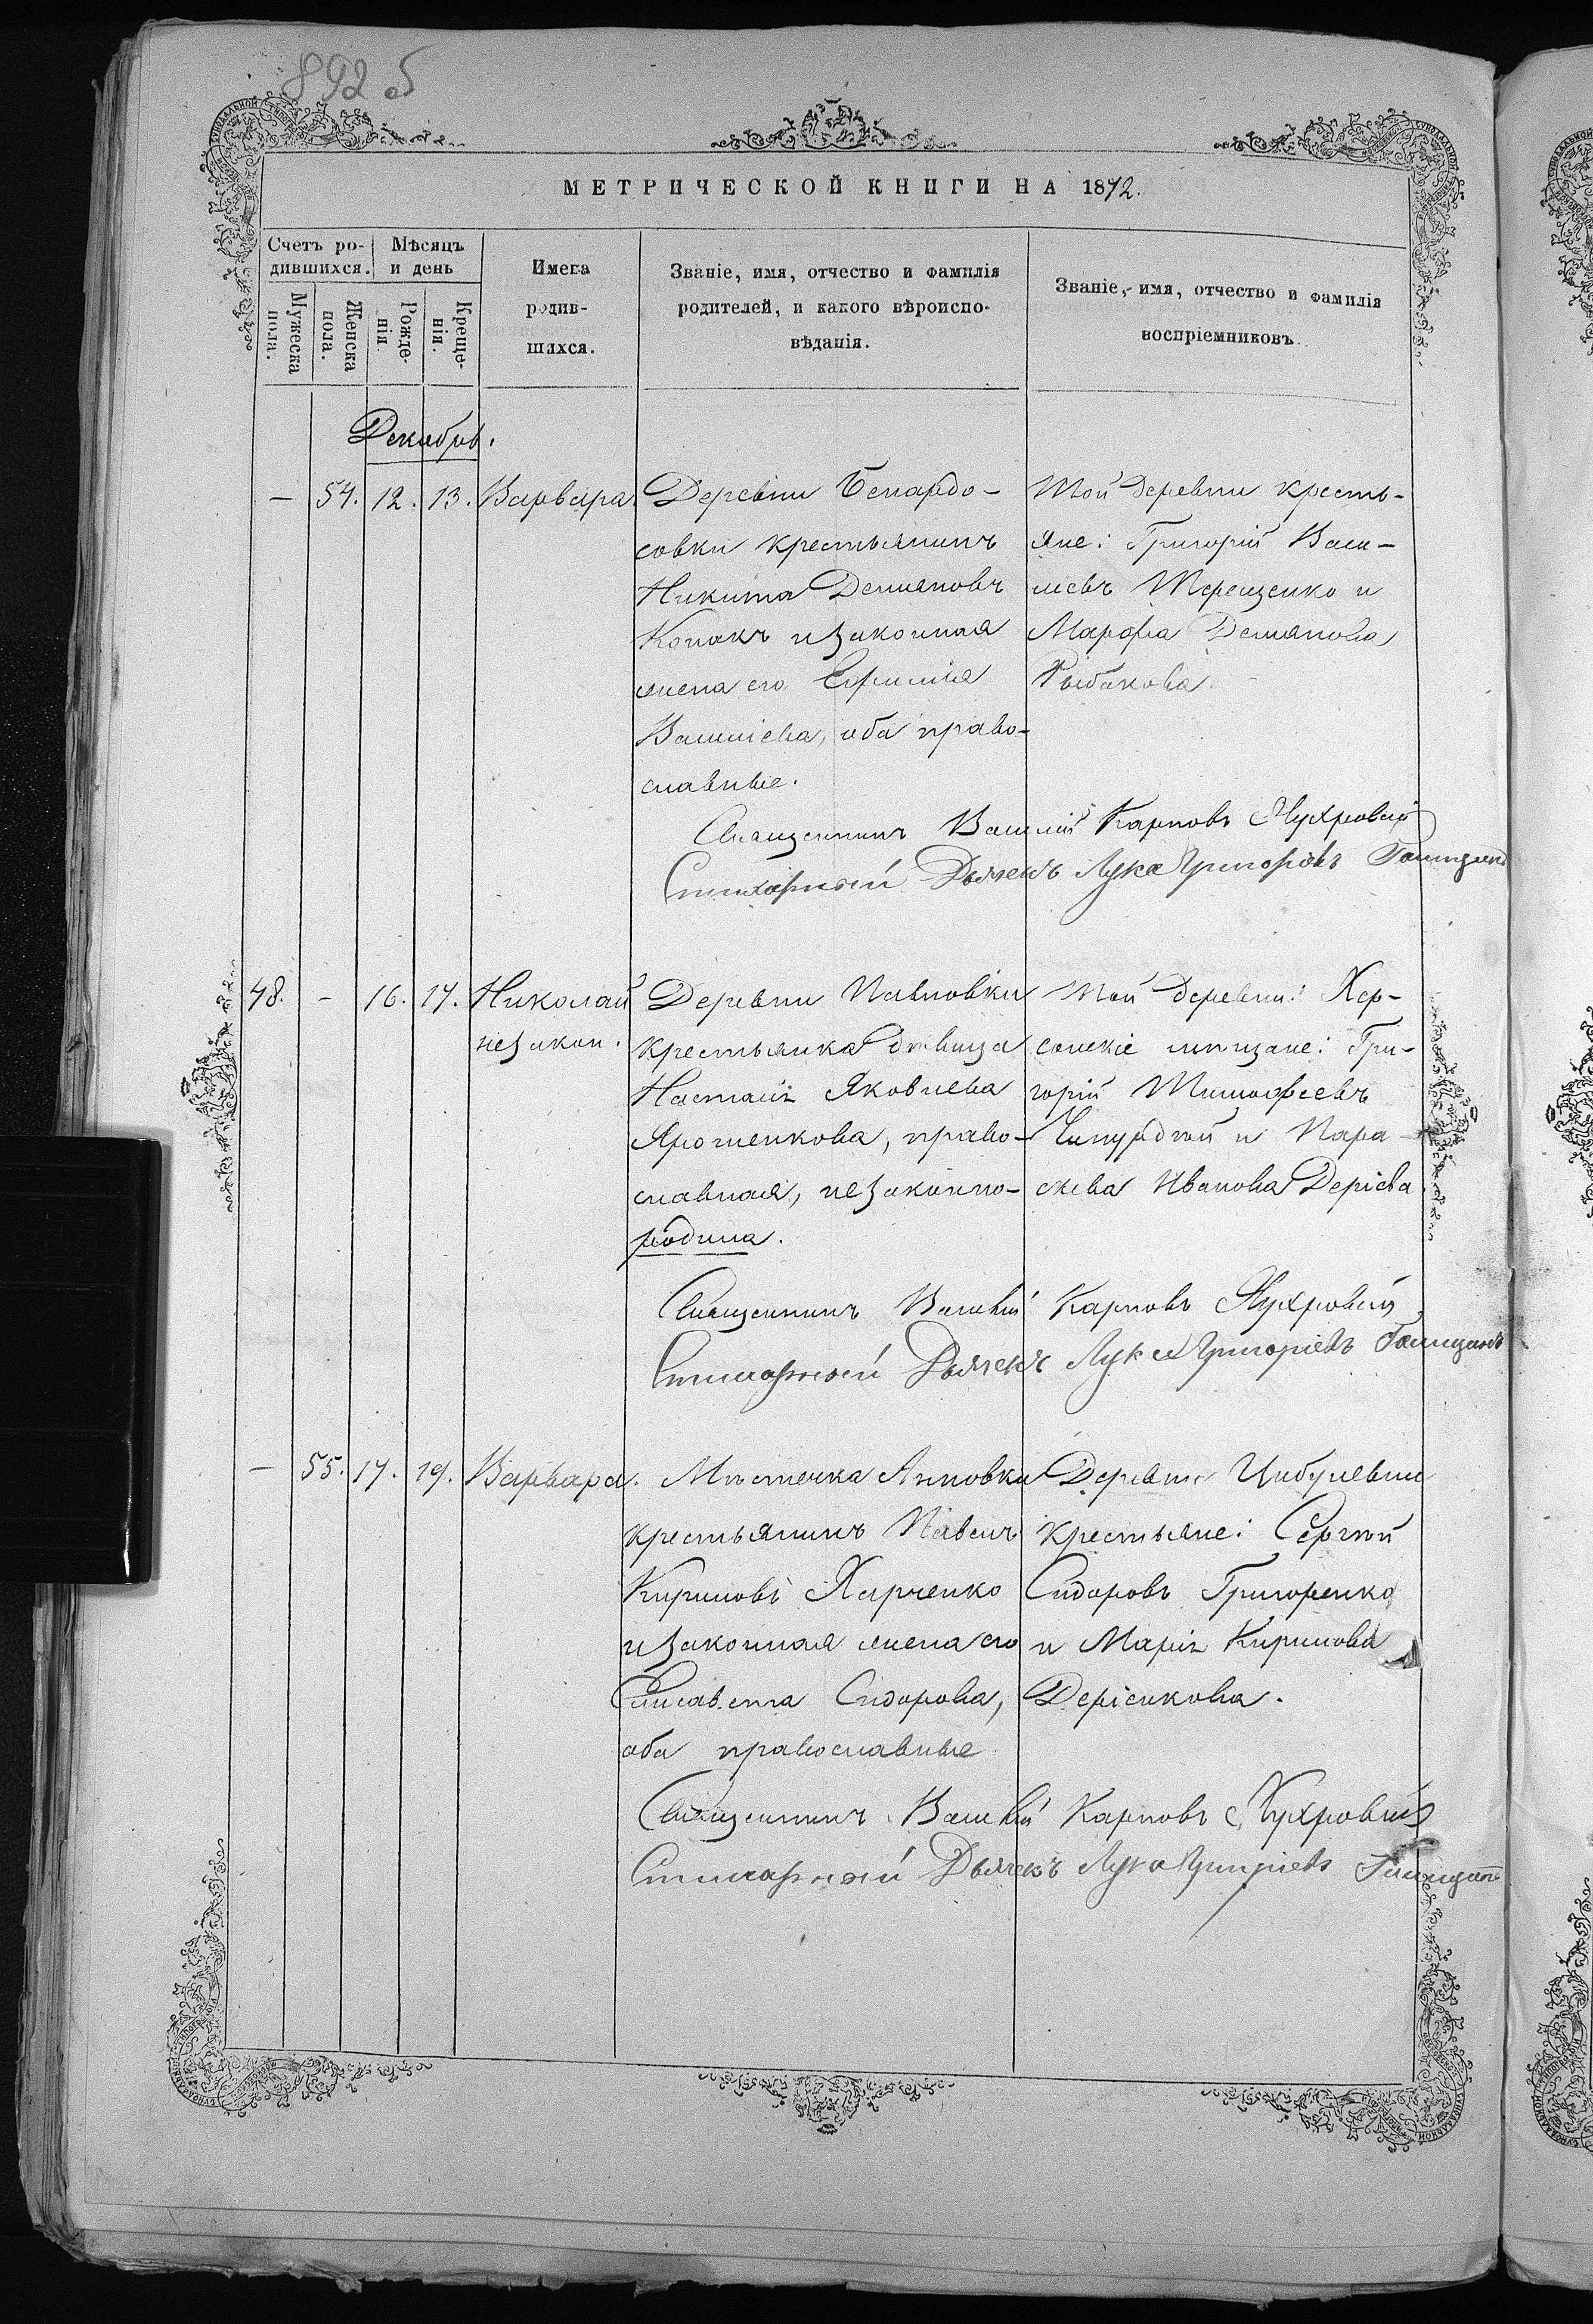 892 б
МЕТРИЧЕСКОЙ КНИГИ НА 1872.
Счетъ ро-
дившихся.
Мѣсяцъ
и день
Имена
родив-
шихся.
Званіе, имя, отчество и фамилія
родителей, и какого вѣроиспо-
вѣданія.
Званіе, имя, отчество и фамилія
воспріемниковъ.
Мужеска
пола.
Женска
пола.
Рожде-
нія.
Креще-
нія.
Декабрь.
— 54. 12. 13. Варвара.
Деревни
совки крестьянинъ
Никита Демяновъ
и законная
жена его Евфимія
Василіева, оба право-
славные.
Той деревни кресть-
яне: Григорій Васи-
ліевъ Терещенко и
Марфа Демянова
Рыбакова.
Священникъ Василій Карповъ
Стихарный Дьячекъ Лука Григоріевъ
48. - 16. 17. Николай
незакон.
Деревни Павловки
крестьянка дѣвица
Настасія Яковлева
Ярошенкова, право-
славная, незаконно-
родила.
Той деревни: Хер-
сонскіе мѣщане: Гри-
горій Тимофеевъ
и Пара-
скева Иванова Деріева.
Священникъ Василій Карповъ
Стихарный Дьячекъ Лука Григоріевъ
— 55. 17. 19. Варвара.
Мѣстечка Анновки
крестьянинъ Павелъ
Кириловъ Харченко
и законная жена его
Елисавета Сидорова,
оба православные
Деревни Цибулевки
крестьяне: Сергѣй
Сидоровъ Григоренко
и Марія Кирилова
Деріенкова.
Священникъ Василій Карповъ
Стихарный Дьячекъ Лука Григоріевъ